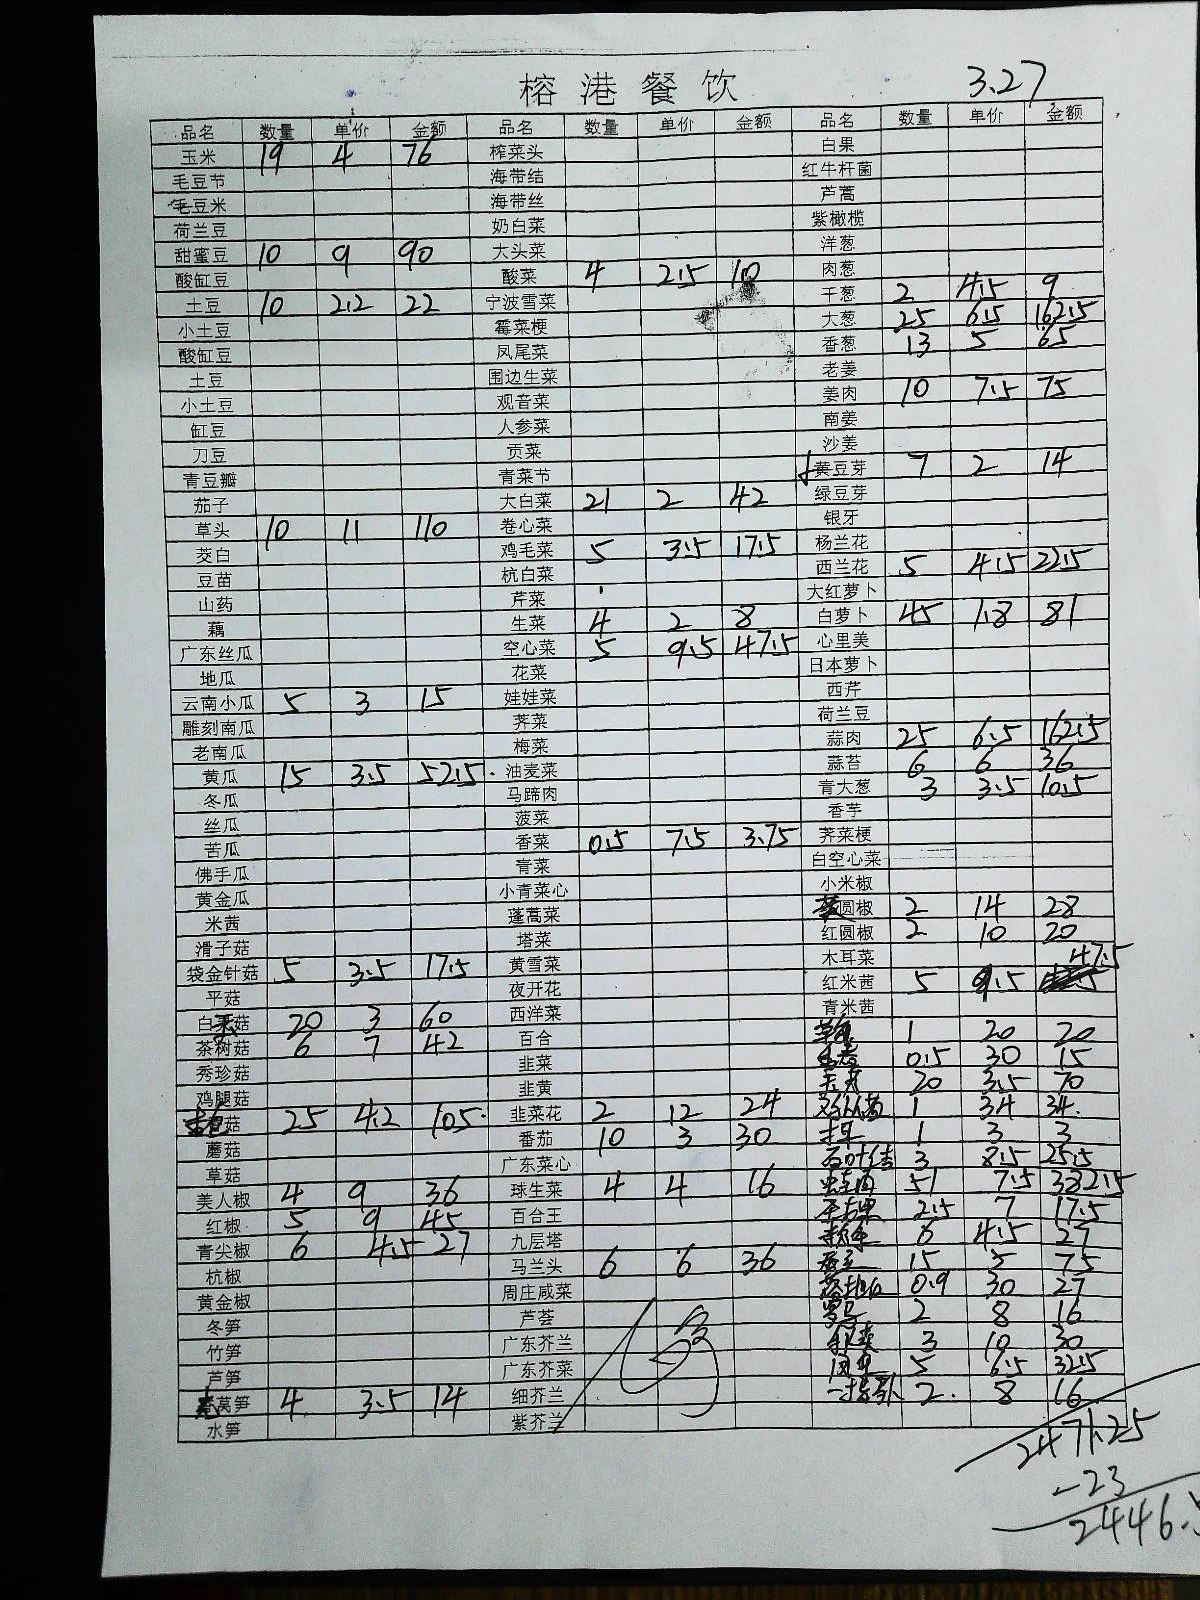 榕港餐饮 3.27
品名 数量 单价 金额 品名 数量 单价 金额 品名 数量 单价 金额
玉米 19 4 76 榨菜头 白果
毛豆节 海带结 红牛杆菌
毛豆米 海带丝 芦蒿
荷兰豆 奶白菜 紫橄榄
甜蜜豆 10 9 90 大头菜 洋葱
酸缸豆 酸菜 4 2.5 10 肉葱
土豆 10 2.2 22 宁波雪菜 干葱 2 4.5 9
小土豆 霉菜梗 大葱 25 6.5 162.5
酸缸豆 凤尾菜 香葱 13 5 65
土豆 围边生菜 老姜
小土豆 观音菜 姜肉 10 7.5 75
缸豆 人参菜 南姜
刀豆 贡菜 沙姜
青豆瓣 青菜节 黄豆芽 7 2 14
茄子 大白菜 21 2 42 绿豆芽
草头 10 11 110 卷心菜 银牙
茭白 鸡毛菜 5 3.5 17.5 杨兰花
豆苗 杭白菜 西兰花 5 4.5 22.5
山药 芹菜 大红萝卜
藕 生菜 4 2 8 白萝卜 45 1.8 81
广东丝瓜 空心菜 5 9.5 47.5 心里美
地瓜 花菜 日本萝卜
云南小瓜 5 3 15 娃娃菜 西芹
雕刻南瓜 荠菜 荷兰豆
老南瓜 梅菜 蒜肉 25 6.5 162.5
黄瓜 15 3.5 52.5 油麦菜 蒜苔 6 6 36
冬瓜 马蹄肉 青大葱 3 3.5 10.5
丝瓜 菠菜 香芋
苦瓜 香菜 0.5 7.5 3.75 荠菜梗
佛手瓜 青菜 白空心菜
黄金瓜 小青菜心 小米椒
米茜 蓬蒿菜 圆椒 2 14 28
滑子菇 塔菜 红圆椒 2 10 20
袋金针菇 5 3.5 17.5 黄雪菜 木耳菜
平菇 夜开花 红米茜 5 9.5 47.5
白菇 20 3 60 西洋菜 青米茜
茶树菇 6 7 42 百合 1 20 20
秀珍菇 韭菜 0.5 30 15
鸡腿菇 韭黄 20 3.5 70
菇 25 4.2 105 韭菜花 2 12 24 1 34 34
蘑菇 番茄 10 3 30 1 3 3
草菇 广东菜心 3 8.5 25.5
美人椒 4 9 36 球生菜 4 4 16 51 7.5 382.5
红椒 5 9 45 百合王 2.5 7 17.5
青尖椒 6 4.5 27 九层塔 6 4.5 27
杭椒 马兰头 6 6 36 15 5 75
黄金椒 周庄咸菜 0.9 30 27
冬笋 芦荟 2 8 16
竹笋 广东芥兰 3 10 30
芦笋 广东芥菜 5 6.5 32.5
莴笋 4 3.5 14 细芥兰 2 8 16
水笋 紫芥兰
2471.25
-23
2446.